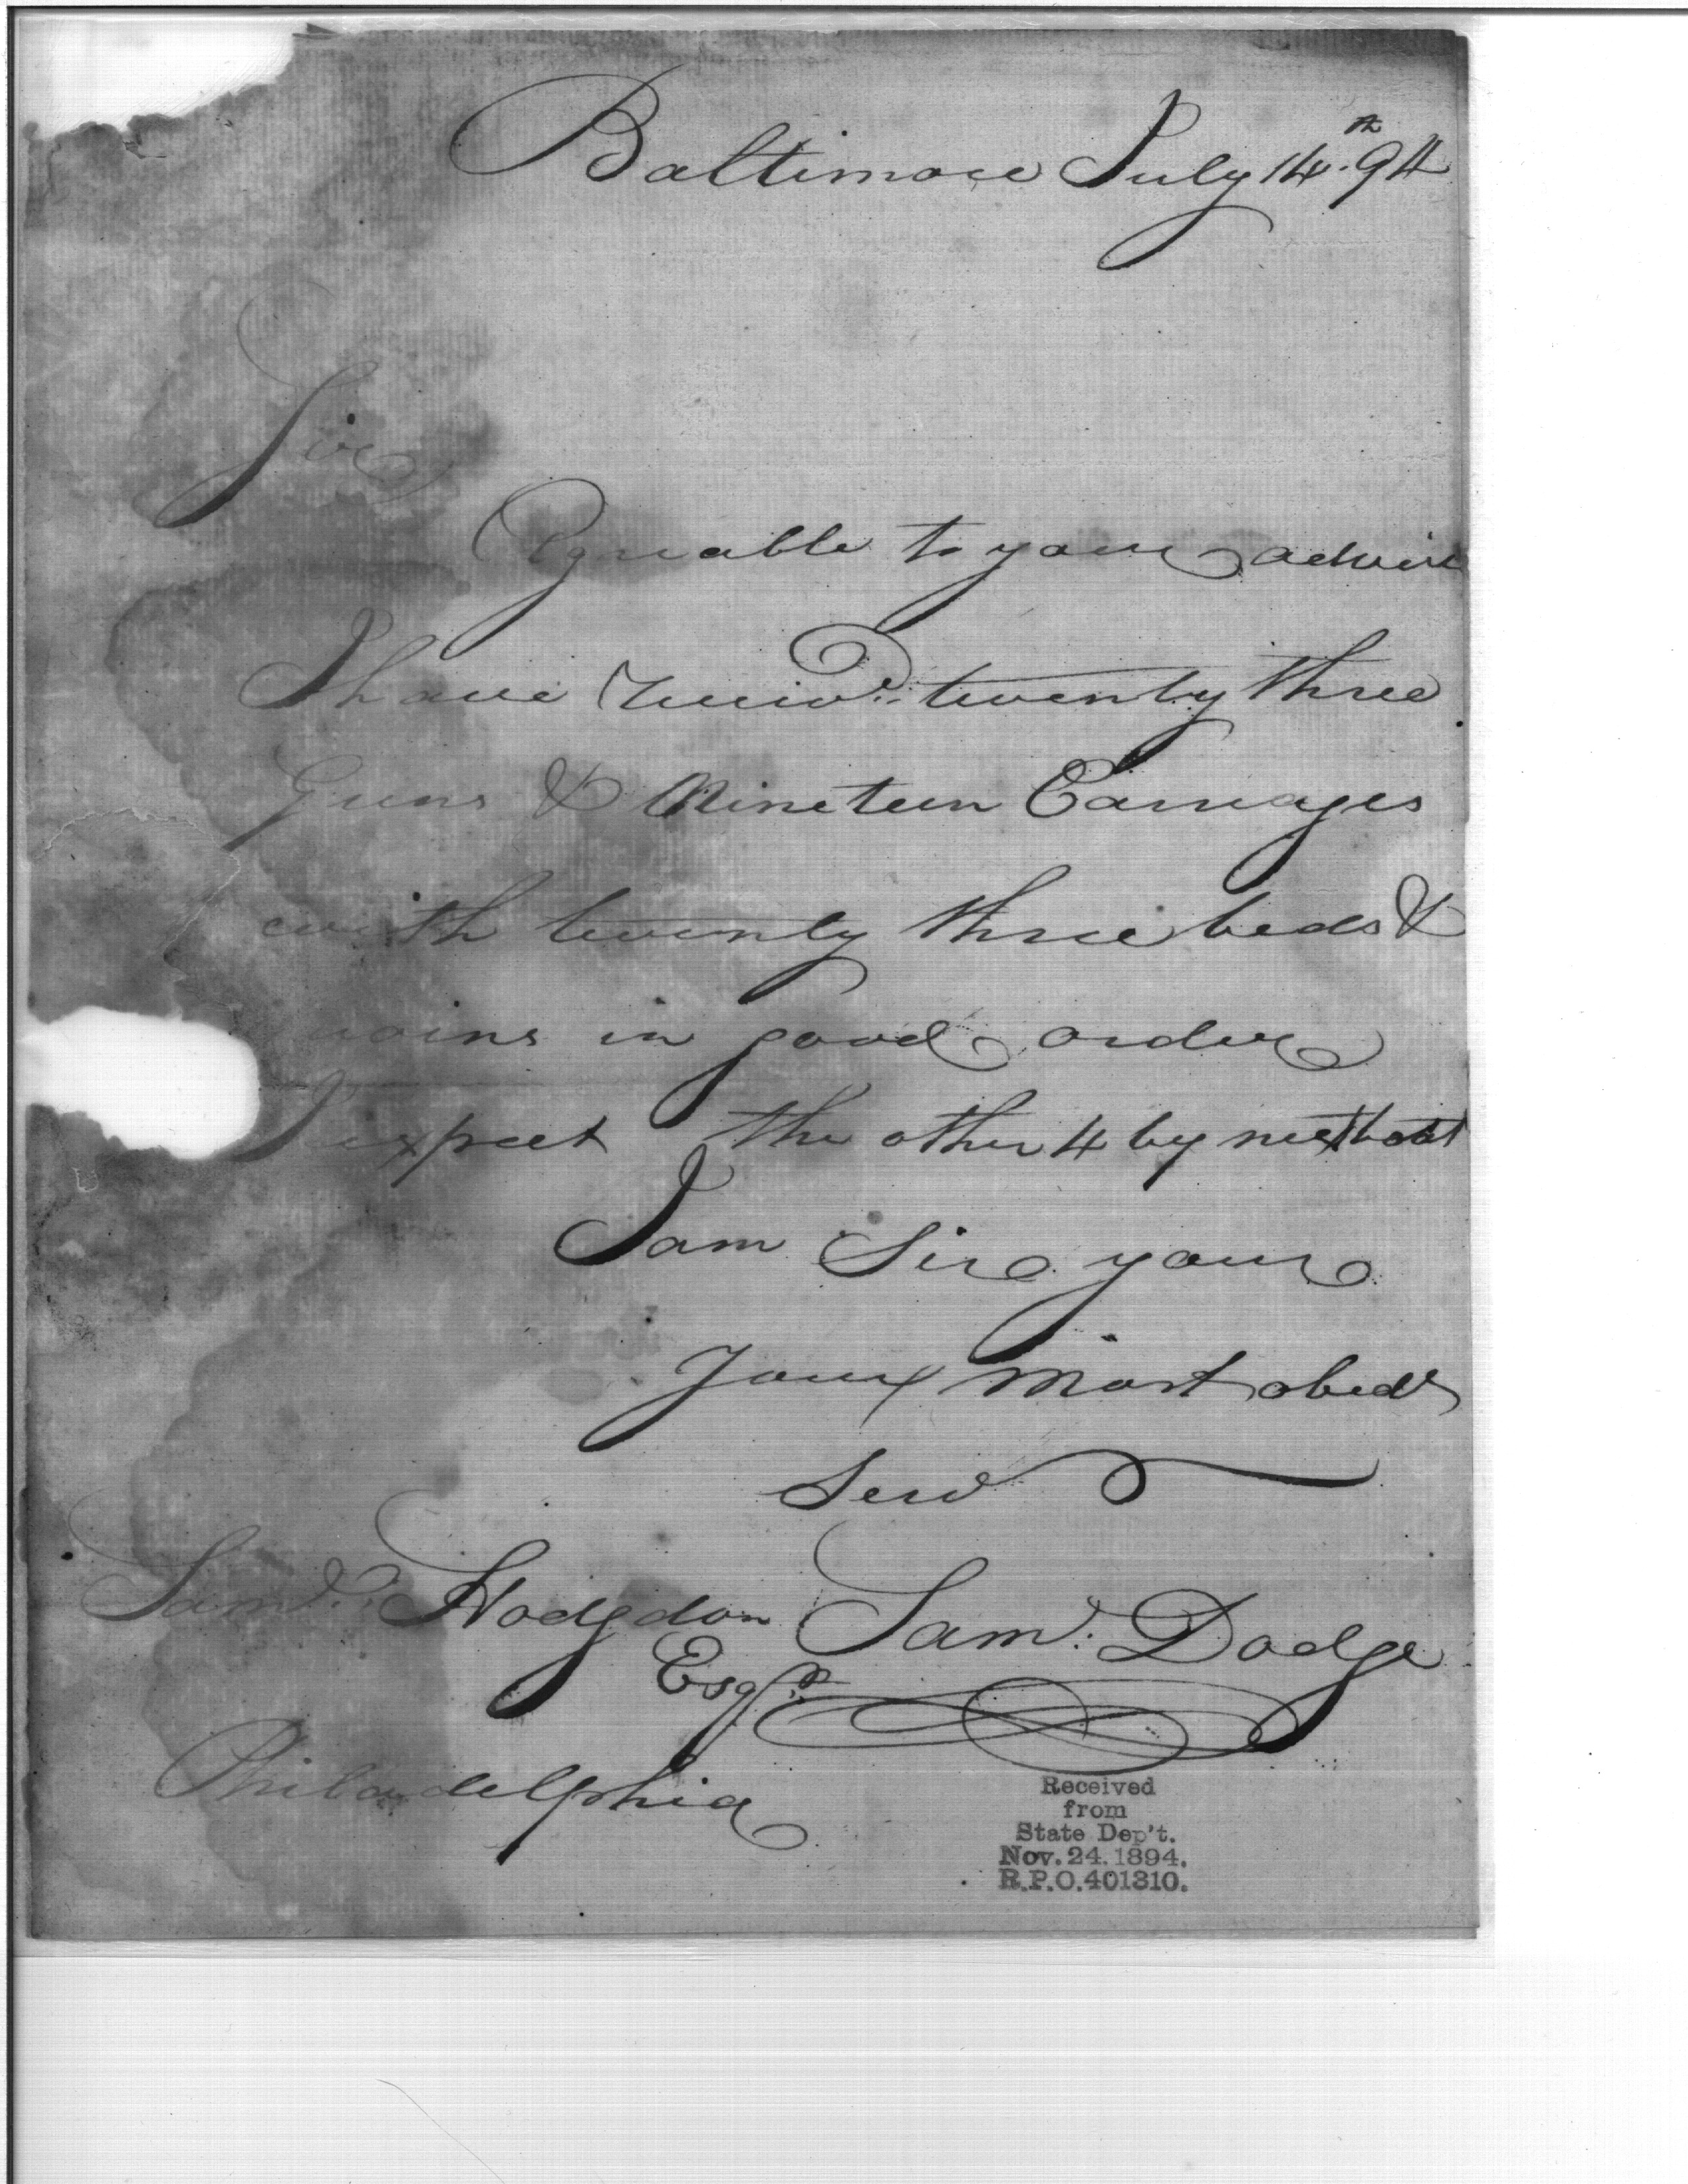 Baltimore July 14th 94
Sir
Agreable to your advice
I have Receivd. twenty three
Guns & Nineteen Carriages
with twenty three beds &
in good order
I expect the other 4 by next boat
I am Sir your
Your Most obedt
Servt
Saml. Hodgdon Saml. Dodge
Esqr.
Philadelphia
Received
from
State Dep't.
Nov. 24. 1894.
R.P.O. 401310.